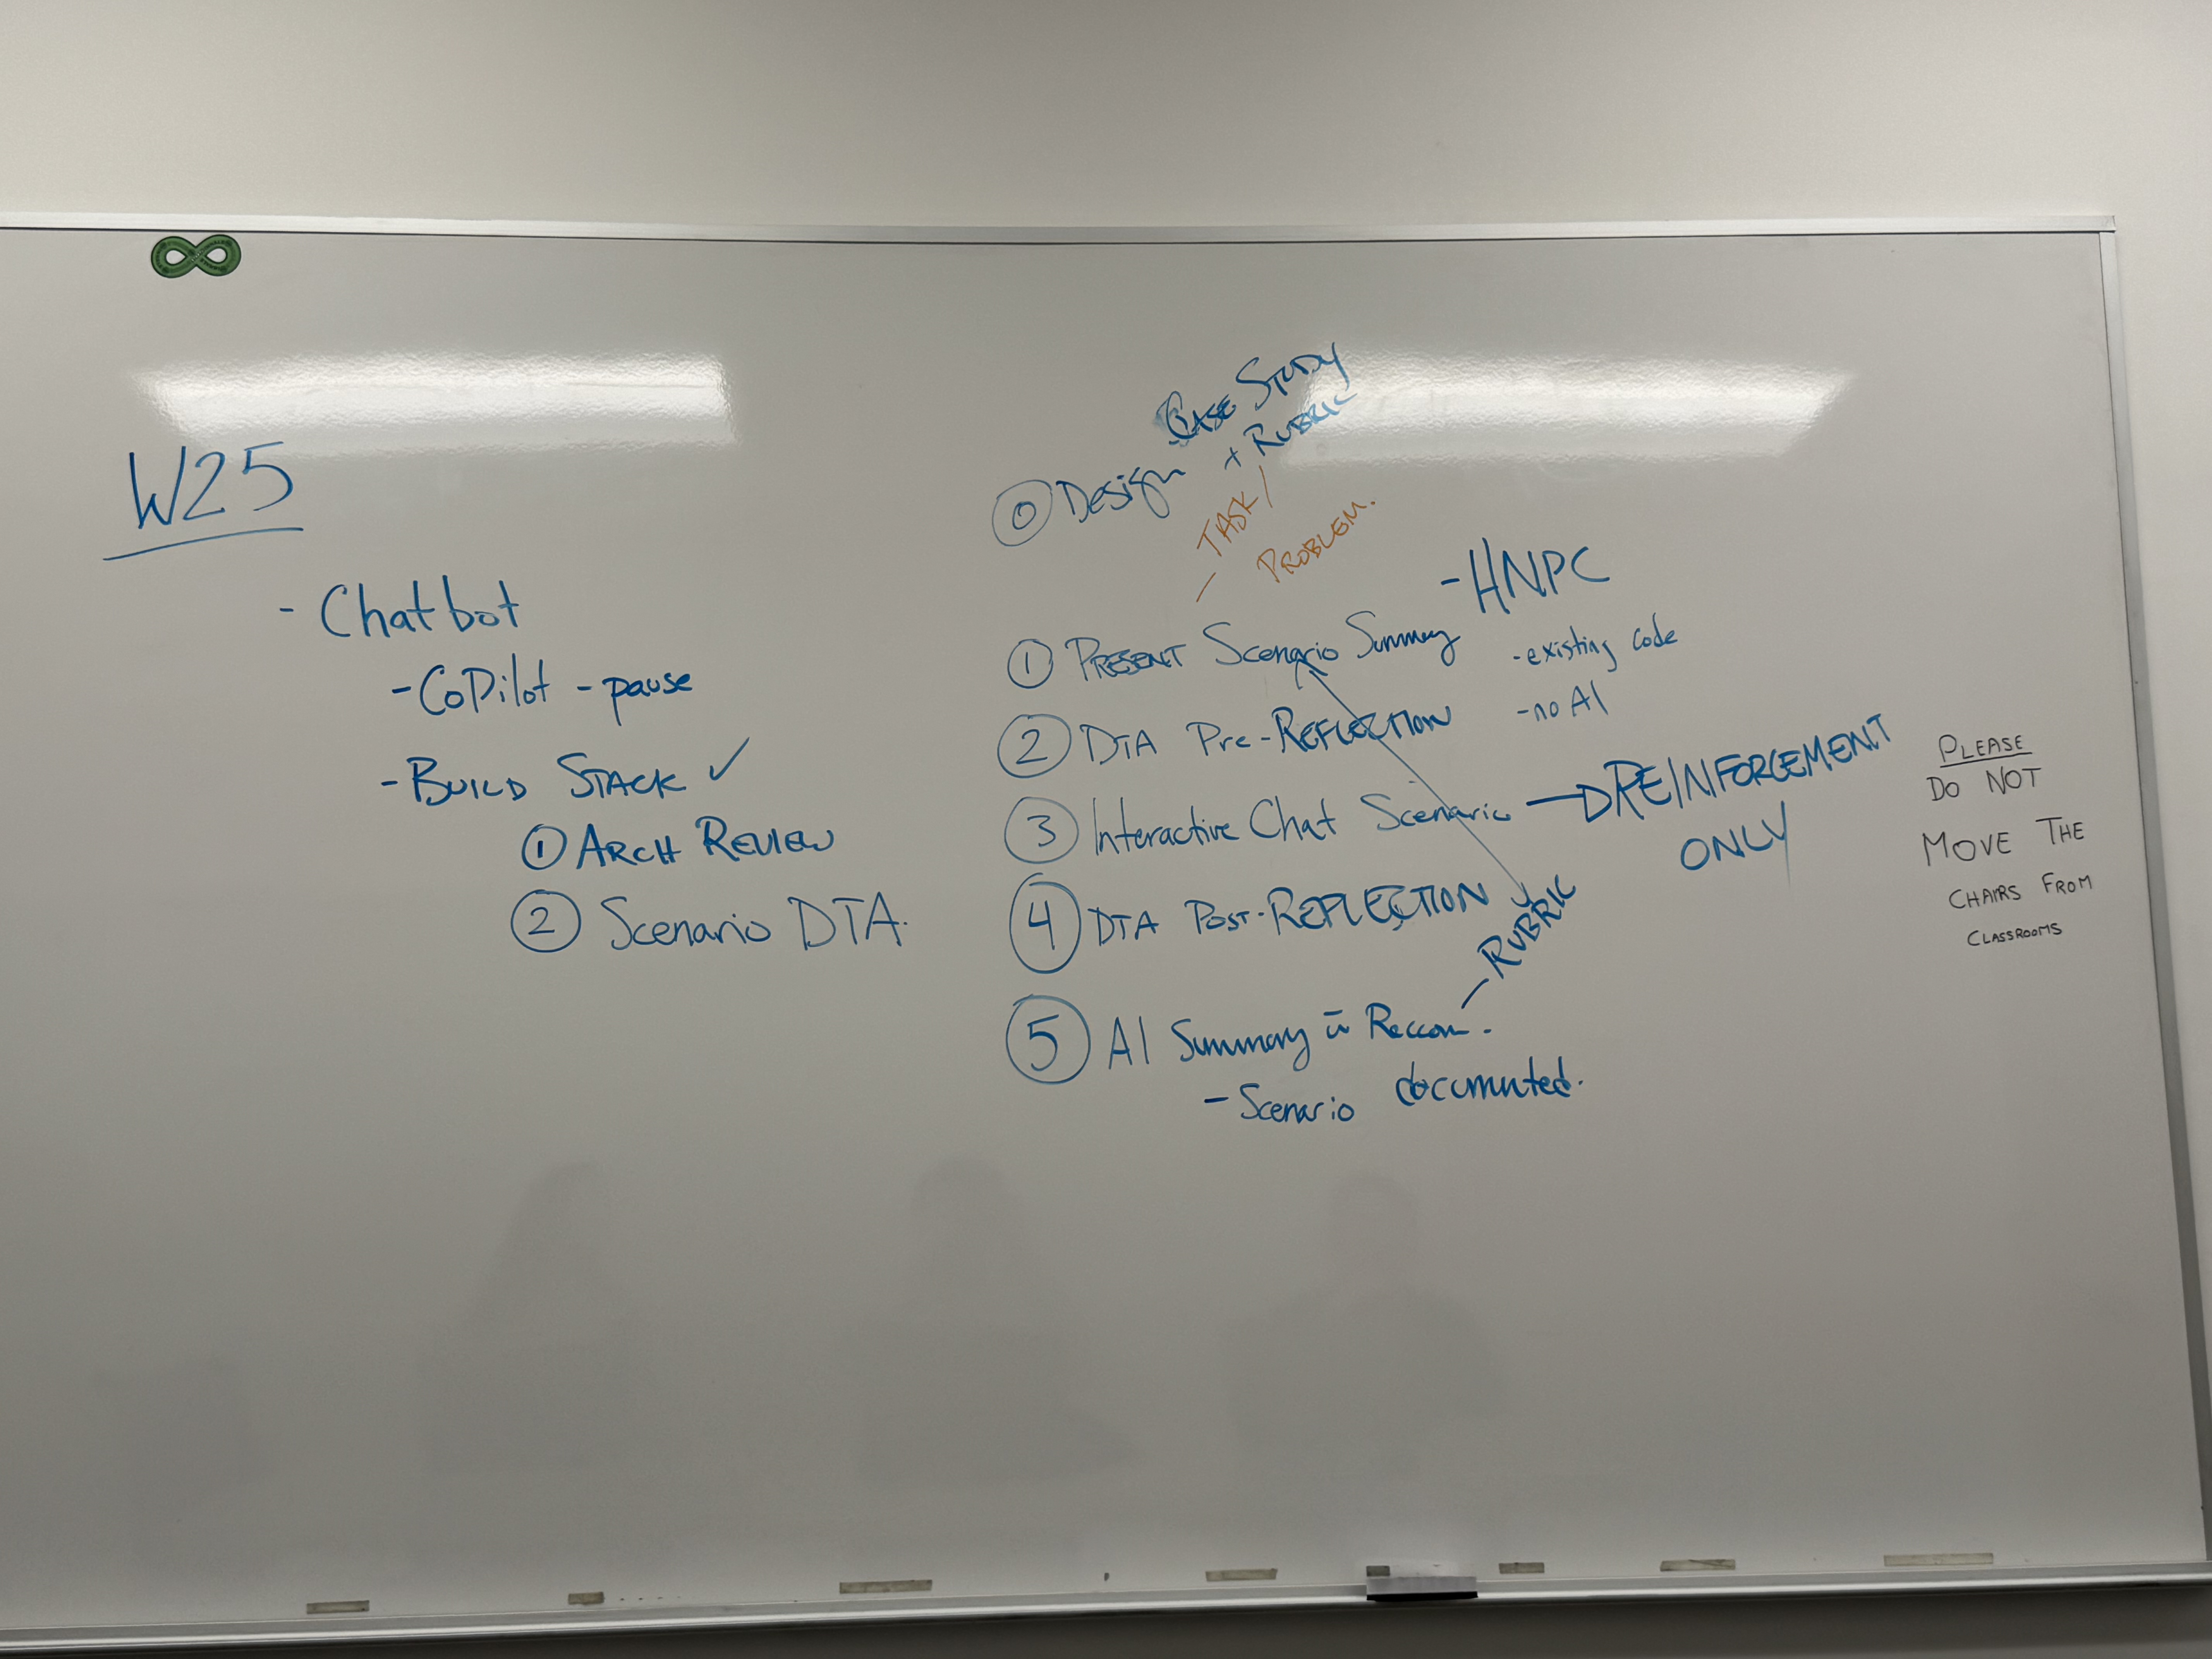 W25
- Chatbot
- CoPilot - pause
- BUILD STACK ✓
① ARCH REVIEW
② Scenario DTA.
CASE STUDY
⓪ Design + RUBRIC
- TASK/
PROBLEM.
- HNPC
① PRESENT Scenario Summary
- existing code
② DTA Pre-REFLECTION
- no AI
③ Interactive Chat Scenario → REINFORCEMENT
ONLY
④ DTA POST-REFLECTION
- RUBRIC
⑤ AI Summary c̄ Reccom.
- Scenario documnted.
PLEASE
DO NOT
MOVE THE
CHAIRS FROM
CLASSROOMS